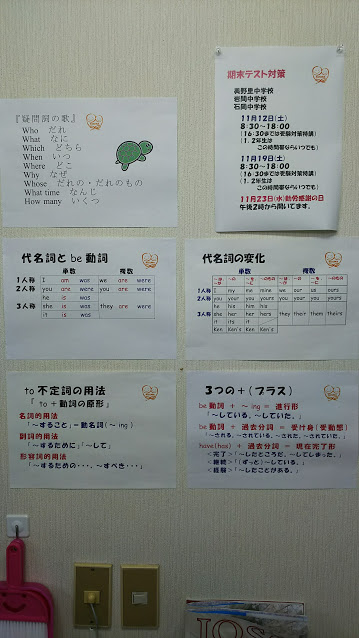 『疑問詞の歌』
Who だれ
What なに
Which どちら
When いつ
Where どこ
Why なぜ
Whose だれの・だれのもの
What time なんじ
How many いくつ
期末テスト対策
長野里中学校
岩間中学校
石岡中学校
11月12日(土)
8:30~18:00
(16:30までは受験対策特講)
(1、2年生は
この時間帯ならいつでも)
11月19日(土)
8:30~18:00
(16:30までは受験対策特講)
(1、2年生は
この時間帯ならいつでも)
11月23日(水)勤労感謝の日
午後2時から開いてます。
代名詞とbe動詞
単数 複数
1人称 I am was we are were
2人称 you are were you are were
he is was
3人称 she is was they are were
it is was
代名詞の変化
単数 複数
1人称 I my me mine we our us ours
2人称 you your you yours you your you yours
he his him his
3人称 she her her hers they their them theirs
it its it
Ken Ken's Ken Ken's
to 不定詞の用法
『to+動詞の原形』
名詞的用法
「~すること」=動名詞(~ing)
副詞的用法
「~するために」「~して」
形容詞的用法
「~するための・・・、~すべき・・・」
3つの+(プラス)
be動詞 + ~ing = 進行形
「~している、~していた。」
be動詞 + 過去分詞 = 受け身(受動態)
「~される、~されている、~された、~されていた。」
have(has) + 過去分詞 = 現在完了形
<完了>「~したところだ、~してしまった。」
<継続>「(ずっと)~している。」
<経験>「~したことがある。」